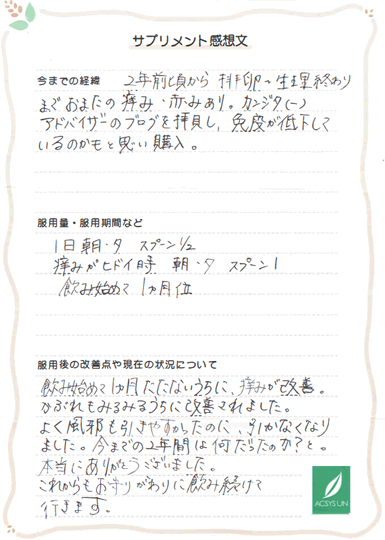 サプリメント感想文
今までの経緯 2年前頃から 排卵~生理終わり
までおまたの痛み・赤みあり。カンジタ(-)
アドバイザーのブログを拝見し、免疫が低下して
いるのかもと思い購入。
服用量・服用期間など
1日朝・夕 スプーン1/2
痛みがヒドイ時 朝・夕 スプーン1
飲み始めて 1ヵ月位
服用後の改善点や現在の状況について
飲み始めて1ヵ月たたないうちに、痛みが改善。
かぶれもみるみるうちに改善されました。
よく風邪も引きやすかったのに、引かなくなり
ました。今までの2年間は何だったのか?と。
本当にありがとうございました。
これからもお守りがわりに飲み続けて
行きます。
ACSYS UN